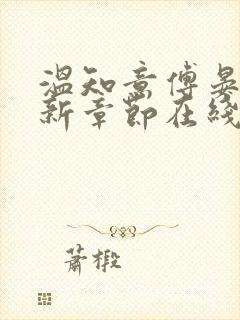 温知意傅晏
新章节在线
萧椴